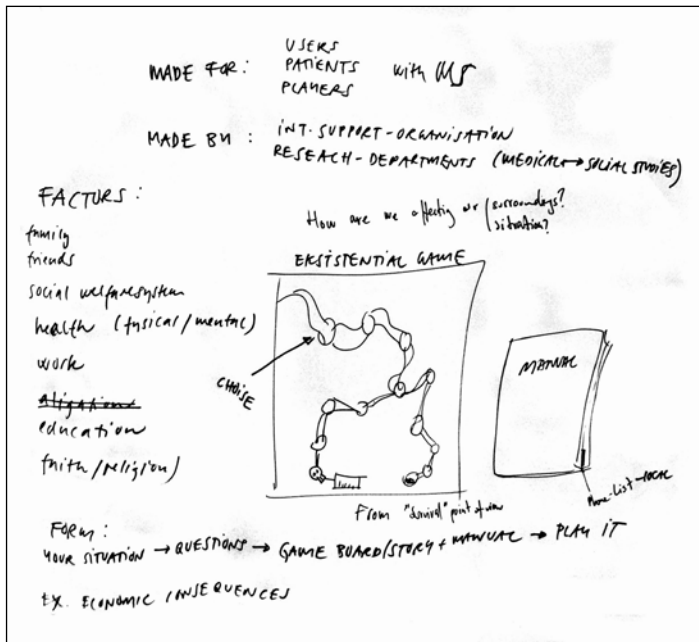 MADE FOR: USERS
PATIENTS with MS
PLAYERS
MADE BY: INT. SUPPORT-ORGANISATION
RESEACH-DEPARTMENTS (MEDICAL↔SOCIAL STUDIES)
FACTURS:
family
friends
social welfaresystem
health (fysical/mental)
work
education
faith/religion)
How are we affecting our / surroundings?
situation?
EKSISTENTIAL GAME
CHOISE
MANUAL
From "survival" point of view
FORM:
YOUR SITUATION → QUESTIONS → GAME BOARD/STORY + MANUAL → PLAY IT
EX. ECONOMIC CONSEQUENCES